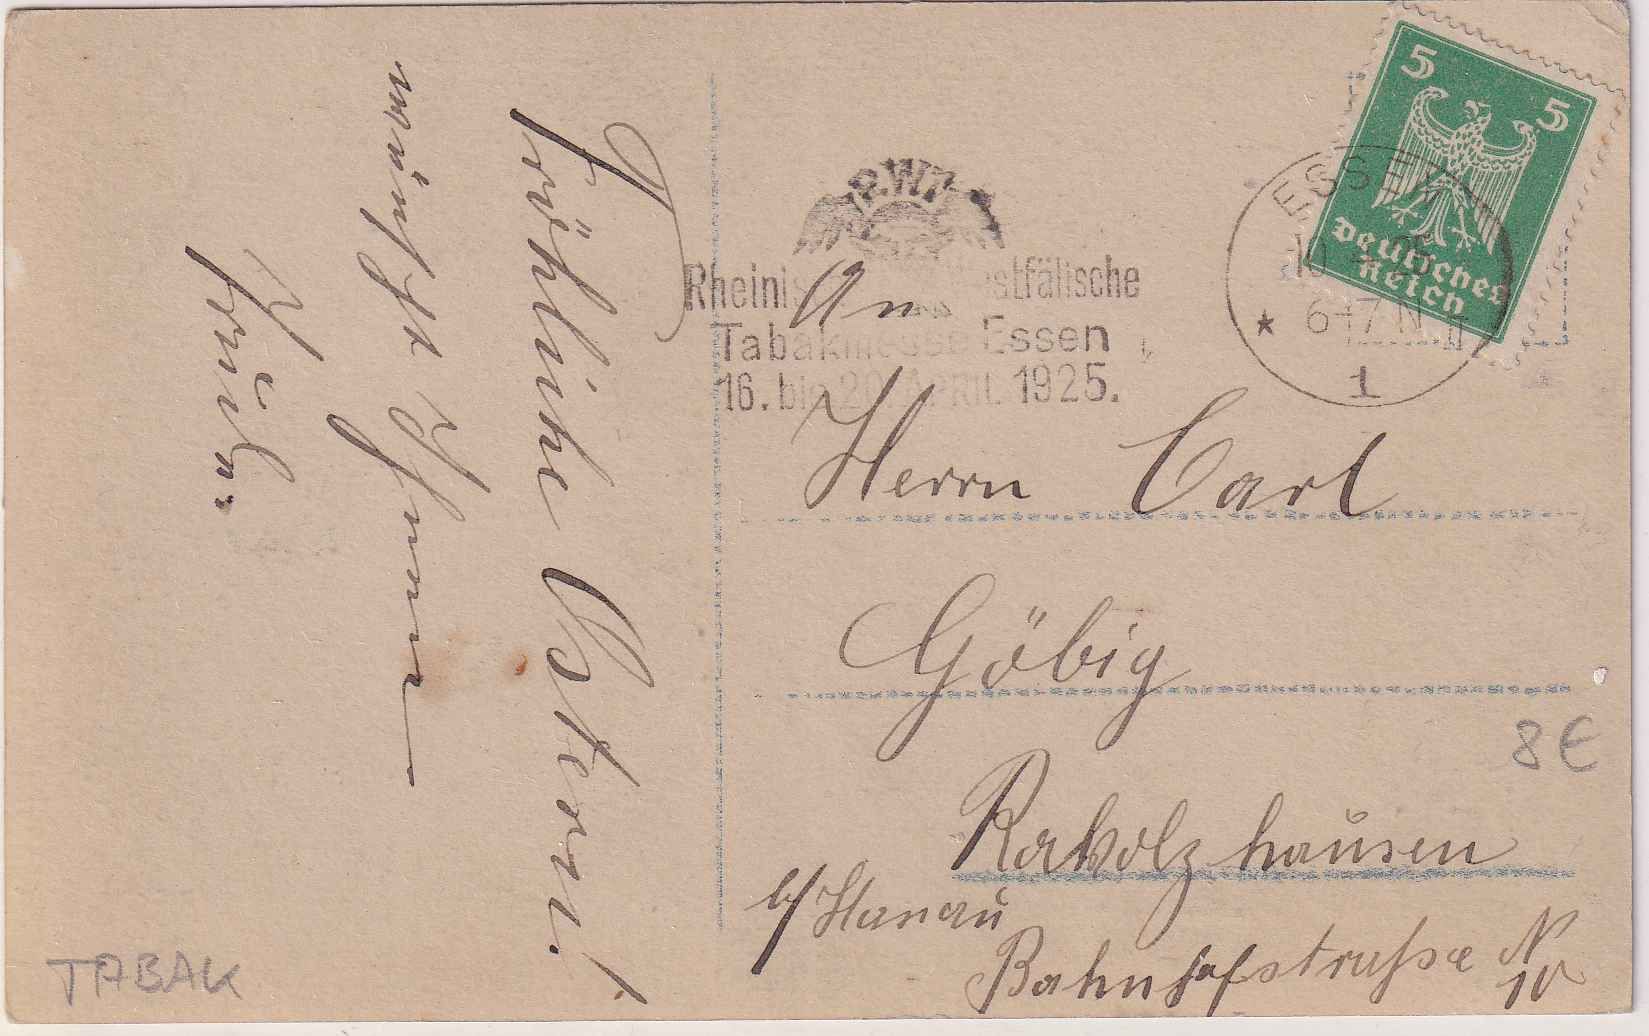 Fröhliche Ostern!
wünscht Ihnen
R.W.T.
Rheinisch Westfälische
Tabakmesse Essen
16. bis 20. APRIL 1925.
ESSEN
10 25
6-7 N
★ 1
5 5
Deutsches
Reich
An
Herrn Carl
Göbig
Ravolzhausen
b/Hanau
Bahnhofstrasse N
10
8€
TABAK